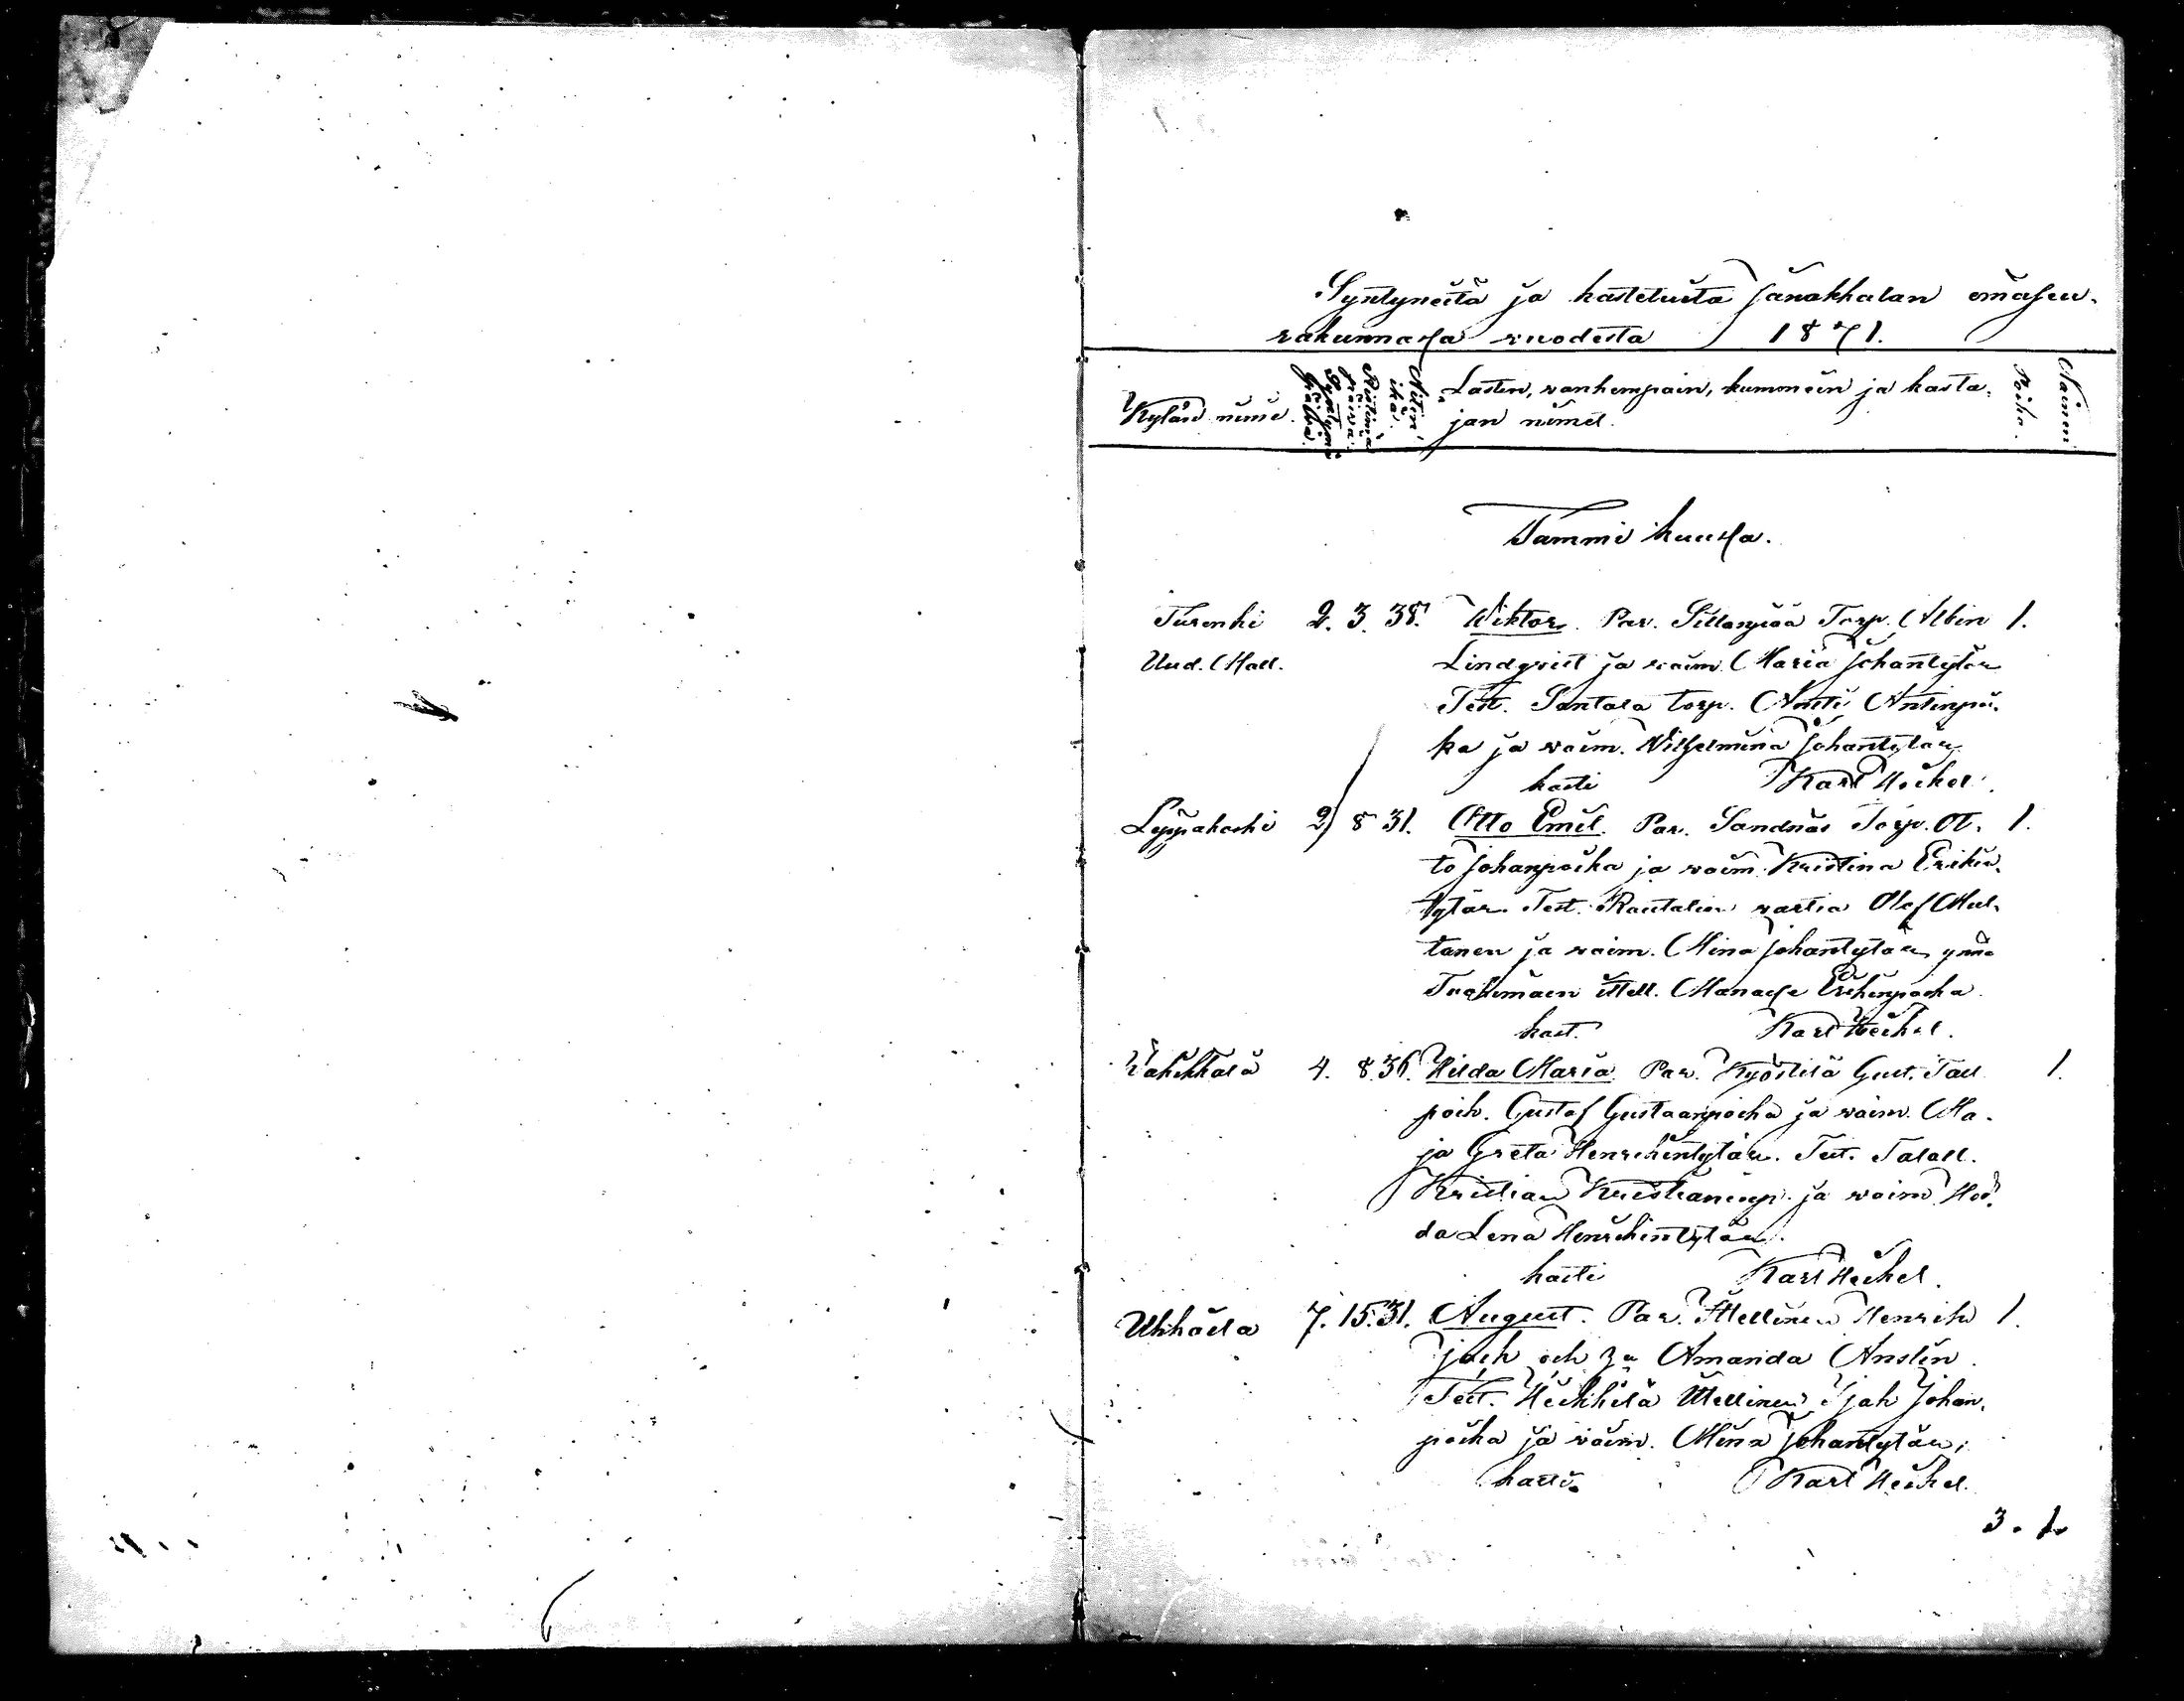 Syntyneitä ja kastetuita Janakkalan emäseu-
rakunnassa vuodesta 1871.
Kylän nimi. Syntymä päivä. Ristimä päivä. Äitin ikä. Lasten, vanhempain, kummein ja kasta- Poika. Nainen
jan nimet.
Tammi kuussa.
Turenki 2. 3. 38. Wiktor. Par. Sillanpää Torp. Albin 1.
Uud. Mall. Lindqvist ja vaim. Maria Johantytär
Test. Santala torp. Antti Antinpoi-
ka ja vaim. Wilhelmina Johantytär
kasti Karl Heikel.
Leppäkoski 2 8 31. Otto Emil. Par. Sandnäs Torp. Ot- 1.
to Johanpoika ja vaim. Kristina Erikin-
tytär. Test. Rautatien vartia Olof Mul-
tanen ja vaim. Mina Johantytär ynnä
ittell. Manasse Erikinpoika
kast. Karl Heikel.
Vähikkälä 4. 8. 36. Hilda Maria. Par. Kyöstilä Gust. Tall 1.
poik. Gustaf Gustaanpoika ja vaim. Ma-
ja Greta Henrikintytär. Test. Talall.
Kristian Kristianinp. ja vaim. Hed-
da Lena Henrikintytär.
kasti Karl Heikel.
7. 15. 31. August. Par. Ittellinen Henrik 1.
Amanda
Test. Heikkilä Ittellinen Isak Johan-
poika ja vaim. Mina Johantytär,
kasti. Karl Heikel.
3. 1.